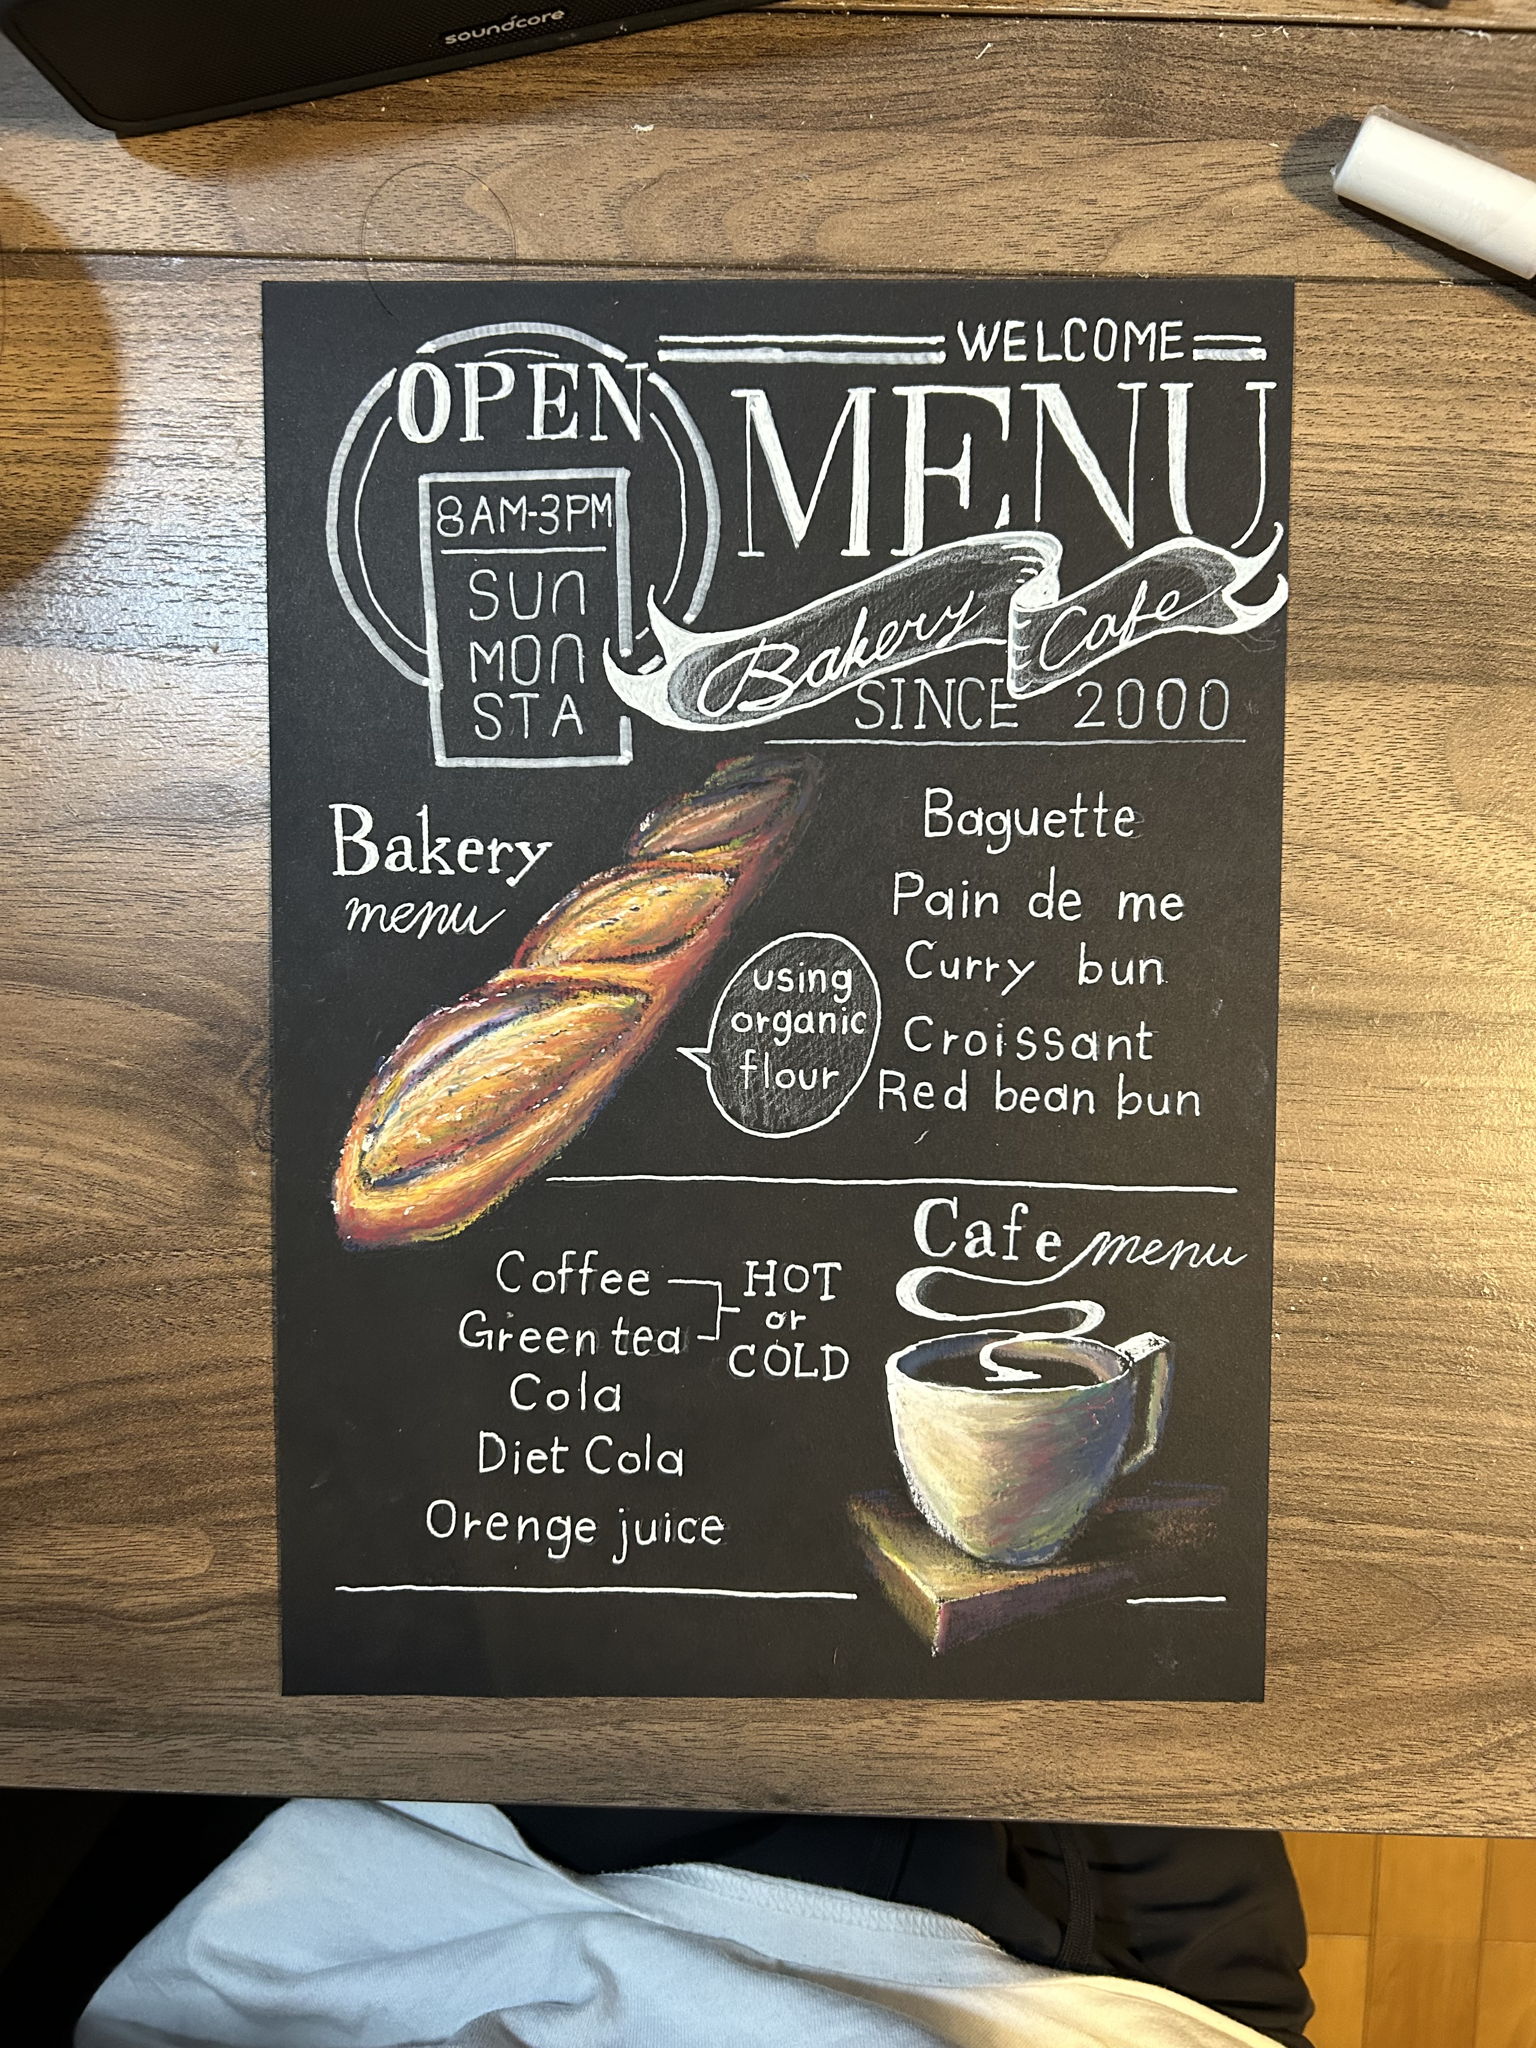 soundcore
OPEN
8AM-3PM
SUN
MON
STA
WELCOME
MENU
Bakery Cafe
SINCE 2000
Bakery
menu
Baguette
Pain de me
Curry bun
Croissant
Red bean bun
using
organic
flour
Cafe menu
Coffee
Green tea
HOT
or
COLD
Cola
Diet Cola
Orenge juice